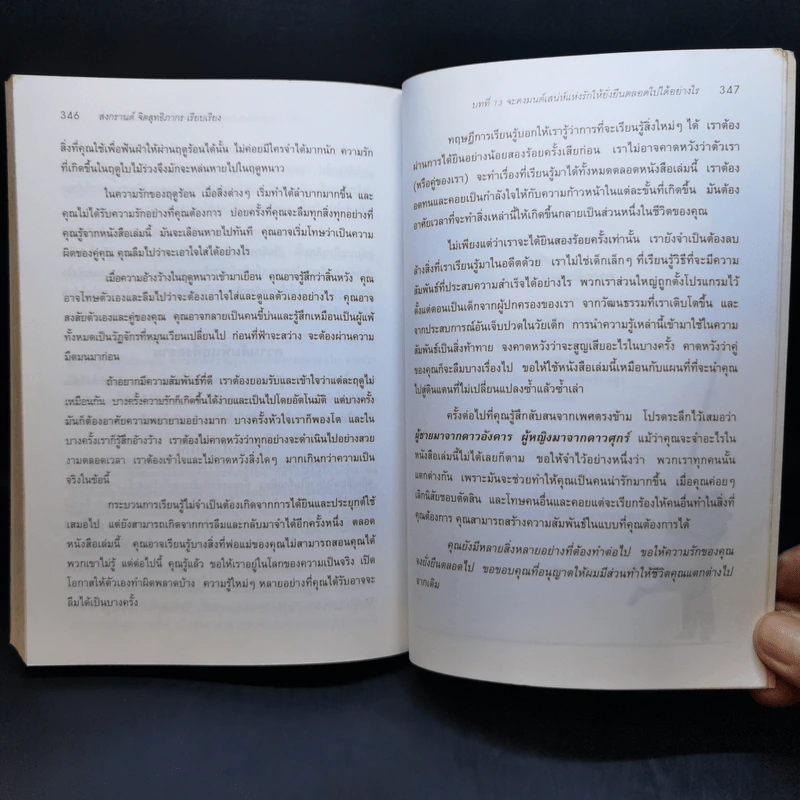 346 สงกรานต์ จิตสุทธิภากร เรียบเรียง
สิ่งที่คุณใช้เพื่อฟันฝ่าให้ผ่านฤดูร้อนได้นั้น ไม่ค่อยมีใครจำได้มากนัก ความรัก
ที่เกิดขึ้นในฤดูใบไม้ร่วงจึงมักจะหล่นหายไปในฤดูหนาว
ในความรักของฤดูร้อน เมื่อสิ่งต่างๆ เริ่มทำได้ลำบากมากขึ้น และ
คุณไม่ได้รับความรักอย่างที่คุณต้องการ บ่อยครั้งที่คุณจะลืมทุกสิ่งทุกอย่างที่
คุณรู้จากหนังสือเล่มนี้ มันจะเลือนหายไปทันที คุณอาจเริ่มโทษว่าเป็นความ
ผิดของคู่คุณ คุณลืมไปว่าจะเอาใจใส่ได้อย่างไร
เมื่อความอ้างว้างในฤดูหนาวเข้ามาเยือน คุณอาจรู้สึกว่าสิ้นหวัง คุณ
อาจโทษตัวเองและลืมไปว่าจะต้องเอาใจใส่และดูแลตัวเองอย่างไร คุณอาจ
สงสัยตัวเองและคู่ของคุณ คุณอาจกลายเป็นคนขี้บ่นและรู้สึกเหมือนเป็นผู้แพ้
ทั้งหมดเป็นวัฏจักรที่หมุนเวียนเปลี่ยนไป ก่อนที่ฟ้าจะสว่าง จะต้องผ่านความ
มืดมนมาก่อน
ถ้าอยากมีความสัมพันธ์ที่ดี เราต้องยอมรับและเข้าใจว่าแต่ละฤดูไม่
เหมือนกัน บางครั้งความรักก็เกิดขึ้นได้ง่ายและเป็นไปโดยอัตโนมัติ แต่บางครั้ง
มันก็ต้องอาศัยความพยายามอย่างมาก บางครั้งหัวใจเราก็พองโต และใน
บางครั้งเราก็รู้สึกอ้างว้าง เราต้องไม่คาดหวังว่าทุกอย่างจะดำเนินไปอย่างสวย
งามตลอดเวลา เราต้องเข้าใจและไม่คาดหวังสิ่งใดๆ มากเกินกว่าความเป็น
จริงในข้อนี้
กระบวนการเรียนรู้ไม่จำเป็นต้องเกิดจากการได้ยินและประยุกต์ใช้
เสมอไป แต่ยังสามารถเกิดจากการลืมและกลับมาจำได้อีกครั้งหนึ่ง ตลอด
หนังสือเล่มนี้ คุณอาจเรียนรู้บางสิ่งที่พ่อแม่ของคุณไม่สามารถสอนคุณได้
พวกเขาไม่รู้ แต่ต่อไปนี้ คุณรู้แล้ว ขอให้เราอยู่ในโลกของความเป็นจริง เปิด
โอกาสให้ตัวเองทำผิดพลาดบ้าง ความรู้ใหม่ๆ หลายอย่างที่คุณได้รับอาจจะ
ลืมได้เป็นบางครั้ง
บทที่ 13 จะคงมนต์เสน่ห์แห่งรักให้ยั่งยืนตลอดไปได้อย่างไร 347
ทฤษฎีการเรียนรู้บอกให้เรารู้ว่าการที่จะเรียนรู้สิ่งใหม่ๆ ได้ เราต้อง
ผ่านการได้ยินอย่างน้อยสองร้อยครั้งเสียก่อน เราไม่อาจคาดหวังว่าตัวเรา
(หรือคู่ของเรา) จะทำเรื่องที่เรียนรู้มาได้ทั้งหมดตลอดหนังสือเล่มนี้ เราต้อง
อดทนและคอยเป็นกำลังใจให้กับความก้าวหน้าในแต่ละขั้นที่เกิดขึ้น มันต้อง
อาศัยเวลาที่จะทำสิ่งเหล่านี้ให้เกิดขึ้นกลายเป็นส่วนหนึ่งในชีวิตของคุณ
ไม่เพียงแต่ว่าเราจะได้ยินสองร้อยครั้งเท่านั้น เรายังจำเป็นต้องลบ
ล้างสิ่งที่เราเรียนรู้มาในอดีตด้วย เราไม่ใช่เด็กเล็กๆ ที่เรียนรู้วิธีที่จะมีความ
สัมพันธ์ที่ประสบความสำเร็จได้อย่างไร พวกเราส่วนใหญ่ถูกตั้งโปรแกรมไว้
ตั้งแต่ตอนเป็นเด็กจากผู้ปกครองของเรา จากวัฒนธรรมที่เราเติบโตขึ้น และ
จากประสบการณ์อันเจ็บปวดในวัยเด็ก การนำความรู้เหล่านี้เข้ามาใช้ในความ
สัมพันธ์เป็นสิ่งท้าทาย จงคาดหวังว่าจะสูญเสียอะไรในบางครั้ง คาดหวังว่าคู่
ของคุณก็จะลืมบางเรื่องไป ขอให้ใช้หนังสือเล่มนี้เหมือนกับแผนที่ที่จะนำคุณ
ไปสู่ดินแดนที่ไม่เปลี่ยนแปลงซ้ำแล้วซ้ำเล่า
ครั้งต่อไปที่คุณรู้สึกสับสนจากเพศตรงข้าม โปรดระลึกไว้เสมอว่า
ผู้ชายมาจากดาวอังคาร ผู้หญิงมาจากดาวศุกร์ แม้ว่าคุณจะจำอะไรใน
หนังสือเล่มนี้ไม่ได้เลยก็ตาม ขอให้จำไว้อย่างหนึ่งว่า พวกเราทุกคนนั้น
แตกต่างกัน เพราะมันจะช่วยทำให้คุณเป็นคนน่ารักมากขึ้น เมื่อคุณค่อยๆ
เลิกนิสัยชอบตัดสิน และโทษคนอื่นและคอยแต่จะเรียกร้องให้คนอื่นทำในสิ่งที่
คุณต้องการ คุณสามารถสร้างความสัมพันธ์ในแบบที่คุณต้องการได้
คุณยังมีหลายสิ่งหลายอย่างที่ต้องทำต่อไป ขอให้ความรักของคุณ
จงยั่งยืนตลอดไป ขอขอบคุณที่อนุญาตให้ผมมีส่วนทำให้ชีวิตคุณแตกต่างไป
จากเดิม